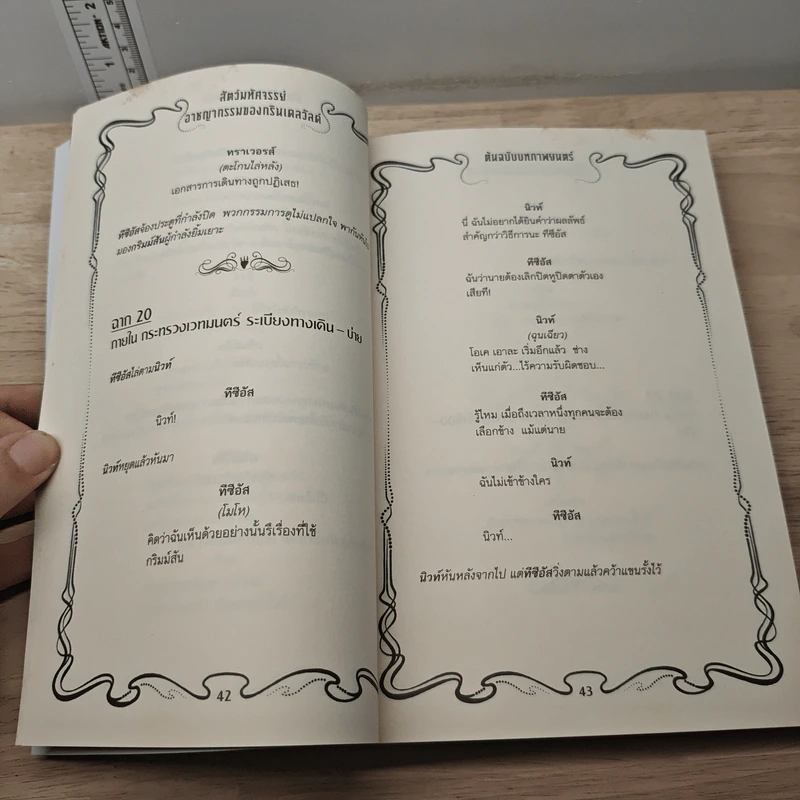 สัตว์มหัศจรรย์
อาชญากรรมของกรินเดลวัลด์
ทราเวอรส์
(ตะโกนไล่หลัง)
เอกสารการเดินทางถูกปฏิเสธ!
ทีซีอัสจ้องประตูที่กำลังปิด พวกกรรมการดูไม่แปลกใจ
มองกริมม์สันผู้กำลังยิ้มเยาะ
ฉาก 20
ภายใน กระทรวงเวทมนตร์ ระเบียงทางเดิน – บ่าย
ทีซีอัสไล่ตามนิวท์
ทีซีอัส
นิวท์!
นิวท์หยุดแล้วหันมา
ทีซีอัส
(โมโห)
คิดว่าฉันเห็นด้วยอย่างนั้นรึเรื่องที่ใช้
กริมม์สัน
42
ต้นฉบับบทภาพยนตร์
นิวท์
นี่ ฉันไม่อยากได้ยินคำว่าผลลัพธ์
สำคัญกว่าวิธีการนะ ทีซีอัส
ทีซีอัส
ฉันว่านายต้องเลิกปิดหูปิดตาตัวเอง
เสียที!
นิวท์
(ฉุนเฉียว)
โอเค เอาละ เริ่มอีกแล้ว ช่าง
เห็นแก่ตัว...ไร้ความรับผิดชอบ...
ทีซีอัส
รู้ไหม เมื่อถึงเวลาหนึ่งทุกคนจะต้อง
เลือกข้าง แม้แต่นาย
นิวท์
ฉันไม่เข้าข้างใคร
ทีซีอัส
นิวท์...
นิวท์หันหลังจากไป แต่ทีซีอัสวิ่งตามแล้วคว้าแขนรั้งไว้
43
2
1